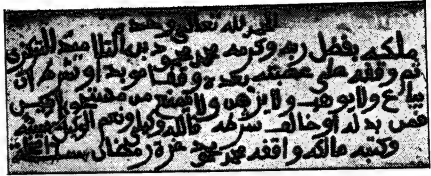 الحمد لله تعالى وحده
ملكه بفضل ربه وكرمه محمد محمود بن التلاميد التركزي
ثم وقفه على عصبته بعده وقفا موبدا وشرطه ان
يباع ولا يوهب ولا يرهن ولا يمنع من مستحق
فمن بدله أو خالف شرطه فالله وكيلي ونعم الوكيل
وكتبه مالكه واقفه محمد محمود غرة رمضان سنة